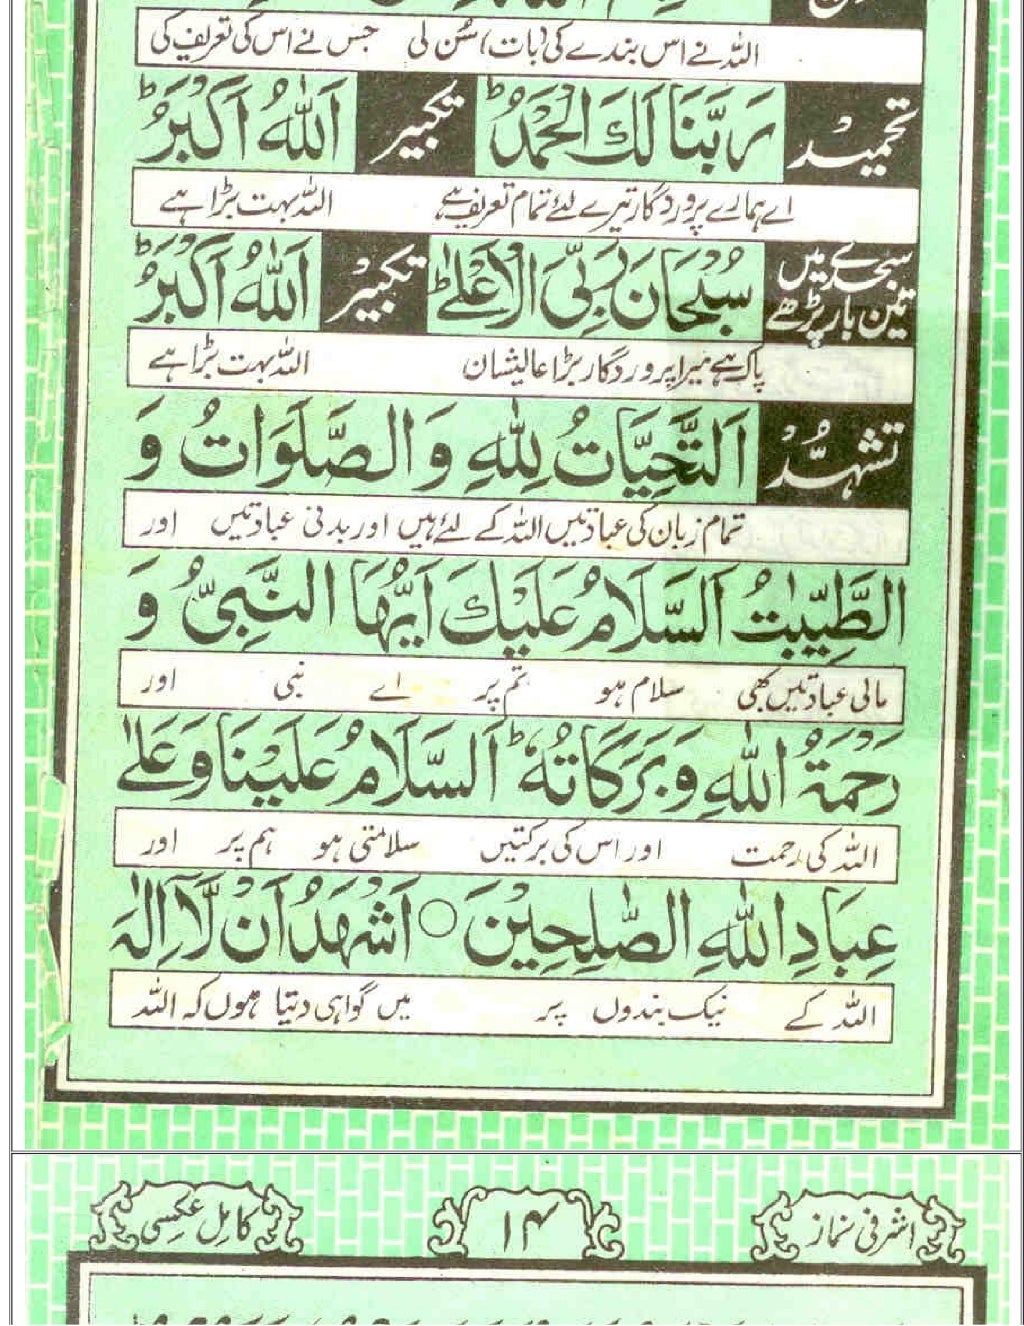 اللہ نے اس بندے کی (بات) سُن لی جس نے اس کی تعریف کی
تحمید رَبَّنَا لَكَ الْحَمْدُ ؕ تکبیر اَللّٰهُ اَكْبَرُ ؕ
اے ہمارے پروردگار تیرے لئے تمام تعریف ہے اللہ بہت بڑا ہے
سجدے میں تین بار پڑھے سُبْحَانَ رَبِّيَ الْاَعْلٰى ؕ تکبیر اَللّٰهُ اَكْبَرُ ؕ
پاک ہے میرا پروردگار بڑا عالیشان اللہ بہت بڑا ہے
تشہُّدْ اَلتَّحِيَّاتُ لِلّٰهِ وَ الصَّلَوَاتُ وَ
تمام زبان کی عبادتیں اللہ کے لئے ہیں اور بدنی عبادتیں اور
الطَّيِّبٰتُ اَلسَّلَامُ عَلَيْكَ اَيُّهَا النَّبِيُّ وَ
مالی عبادتیں بھی سلام ہو تم پر اے نبی اور
رَحْمَةُ اللّٰهِ وَبَرَكَاتُهٗ ؕ اَلسَّلَامُ عَلَيْنَا وَعَلٰى
اللہ کی رحمت اور اس کی برکتیں سلامتی ہو ہم پر اور
عِبَادِ اللّٰهِ الصّٰلِحِيْنَ ○ اَشْهَدُ اَنْ لَّآ اِلٰهَ
اللہ کے نیک بندوں پر میں گواہی دیتا ہوں کہ اللہ
اشرفی نماز ۱۴ کامل عکسی